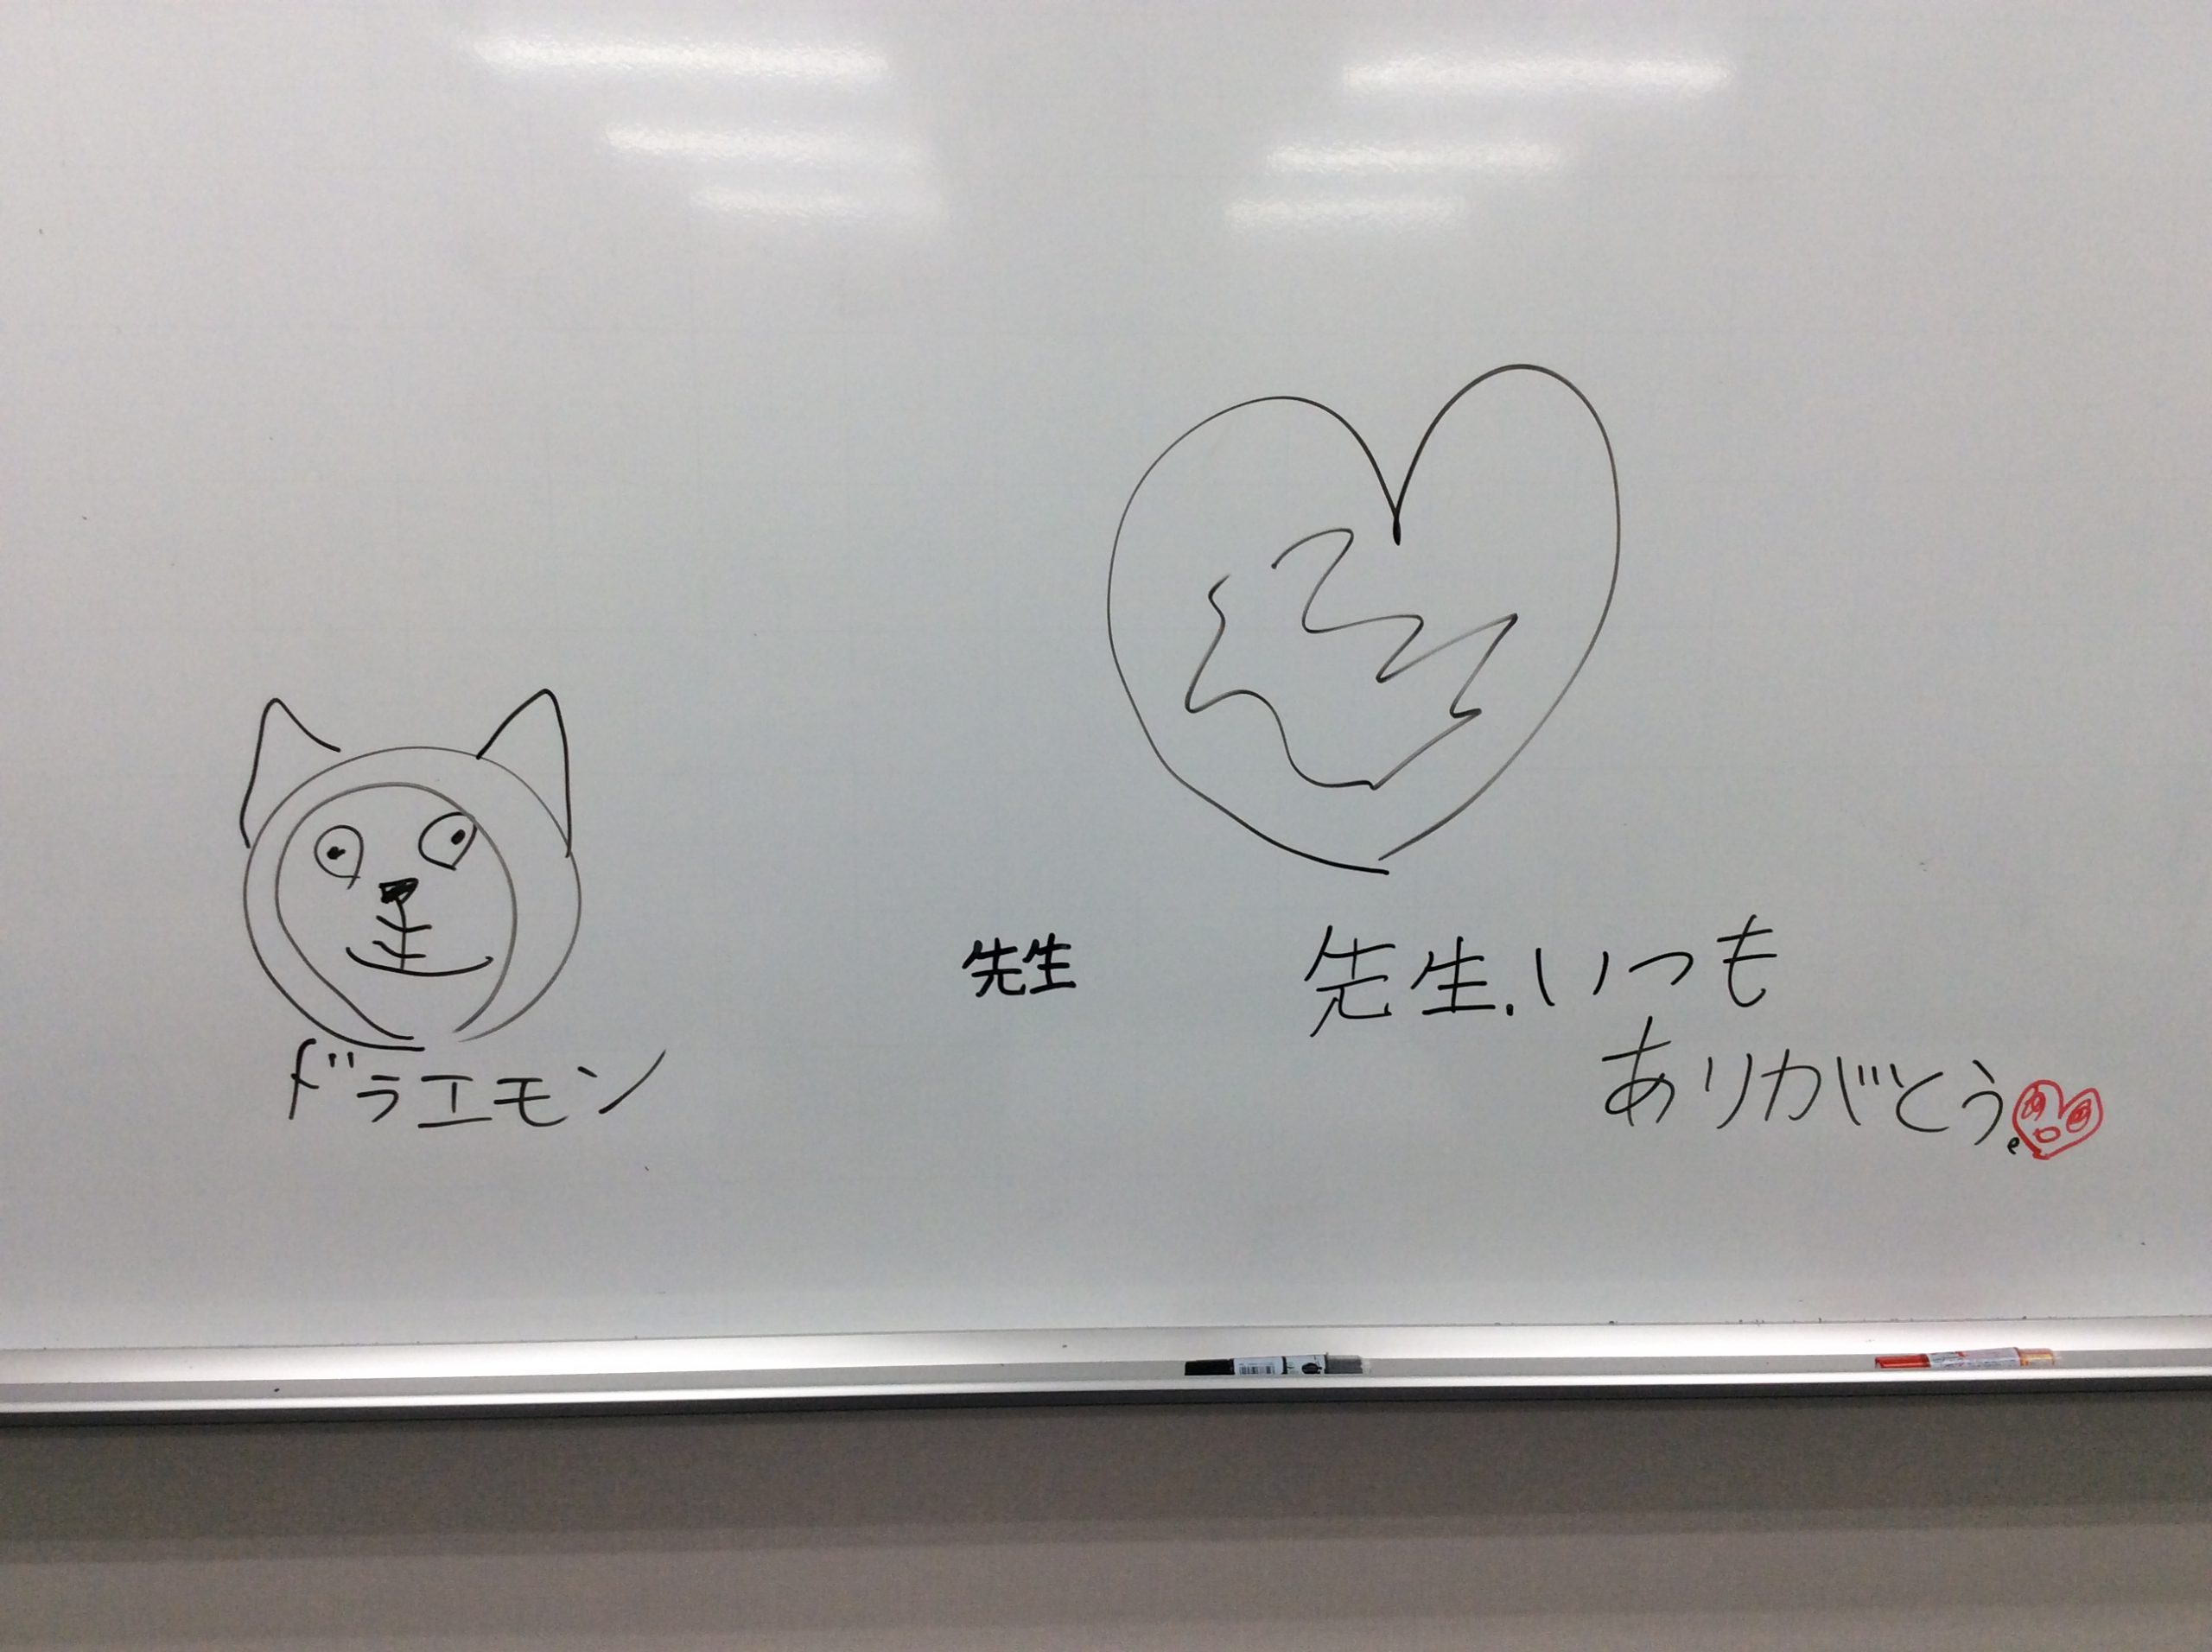 ドラエモン
先生
先生.いつも
ありがとう。